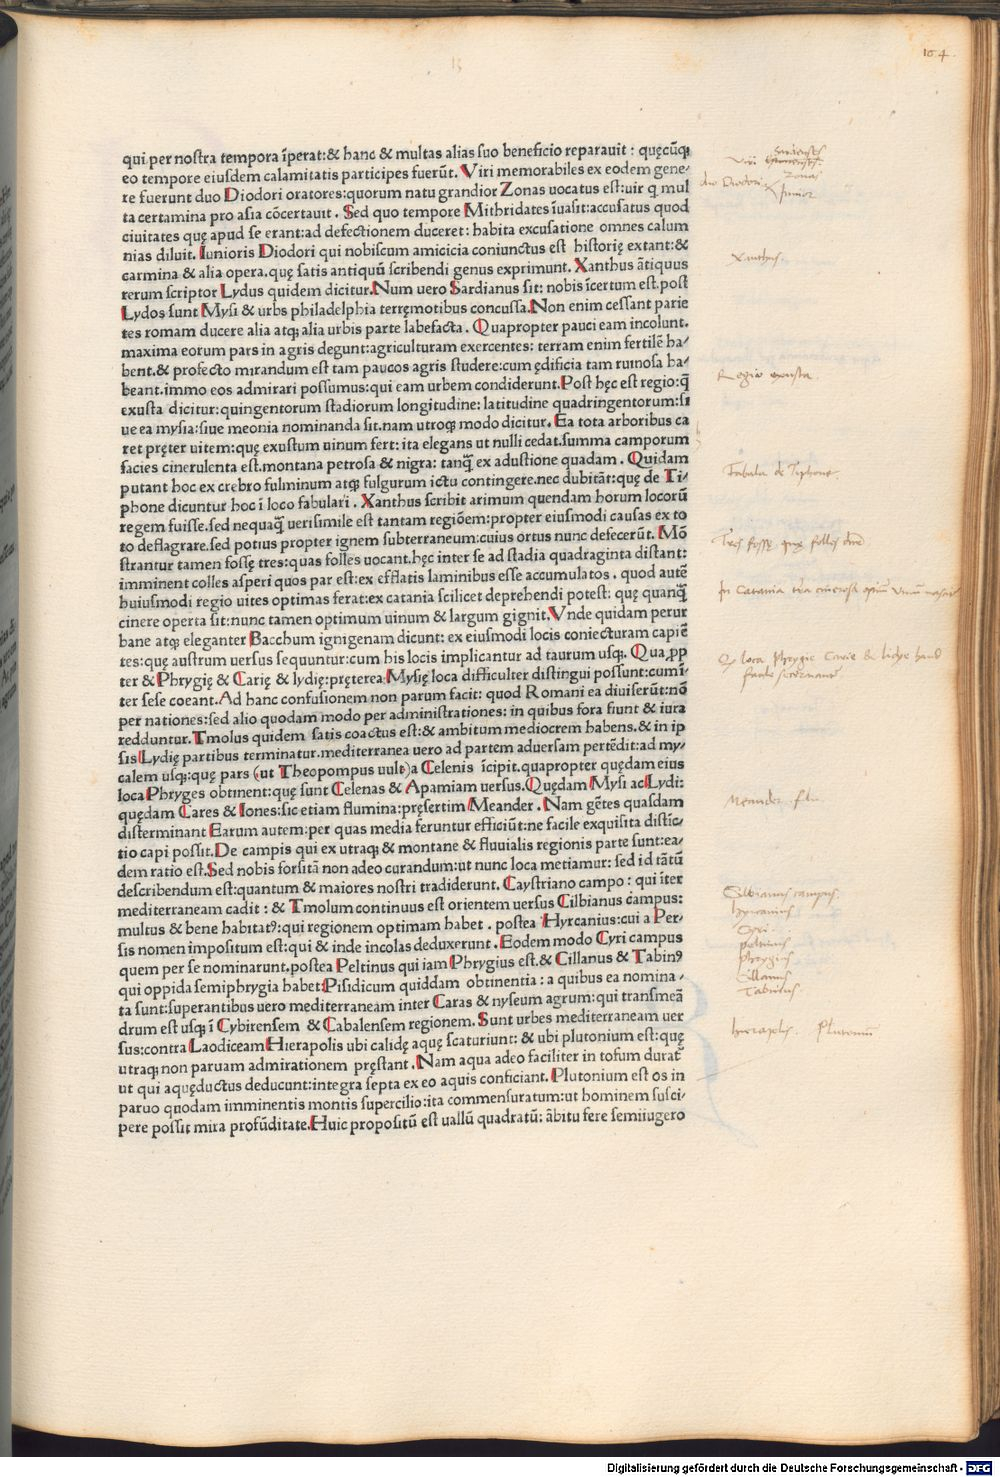 164
qui per nostra tempora īperat:& hanc & multas alias suo beneficio reparauit : quęcūqꝫ
eo tempore eiusdem calamitatis participes fuerūt. Viri memorabiles ex eodem gene⸗
re fuerunt duo Diodori oratores:quorum natu grandior Zonas uocatus est:uir q̱ mul
ta certamina pro asia cōcertauit. Sed quo tempore Mithridates īuasit:accusatus quod
ciuitates quę apud se erant:ad defectionem duceret: habita excusatione omnes calum
nias diluit. Iunioris Diodori qui nobiscum amicicia coniunctus est historię extant:&
carmina & alia opera.quę satis antiquū scribendi genus exprimunt. Xanthus ātiquus
rerum scriptor Lydus quidem dicitur.Num uero Sardianus sit: nobis īcertum est.post
Lydos sunt Mysi & urbs philadelphia terręmotibus concussa.Non enim cessant parie
tes romam ducere alia atqꝫ alia urbis parte labefacta. Quapropter pauci eam incolunt.
maxima eorum pars in agris degunt:agriculturam exercentes: terram enim fertilē ha⸗
bent.& profecto mirandum est tam paucos agris studere:cum ędificia tam ruinosa ha⸗
beant.immo eos admirari possumus:qui eam urbem condiderunt.Post hęc est regio:q̄
exusta dicitur:quingentorum stadiorum longitudine: latitudine quadringentorum:si
ue ea mysia:siue meonia nominanda sit.nam utroqꝫ modo dicitur. Ea tota arboribus ca
ret pręter uitem:quę exustum uinum fert: ita elegans ut nulli cedat.summa camporum
facies cinerulenta est.montana petrosa & nigra: tanq̄ ex adustione quadam. Quidam
putant hoc ex crebro fulminum atqꝫ fulgurum ictu contingere.nec dubitāt:quę de Ti⸗
phone dicuntur hoc ī loco fabulari. Xanthus scribit arimum quendam horum locorū
regem fuisse.sed nequaq̄ uerisimile est tantam regiōem:propter eiusmodi causas ex to
to deflagrare.sed potius propter ignem subterraneum:cuius ortus nunc defecerūt. Mō
strantur tamen fossę tres:quas folles uocant.hęc inter se ad stadia quadraginta distant:
imminent colles asperi quos par est:ex efflatis laminibus esse accumulatos. quod autē
huiusmodi regio uites optimas ferat:ex catania scilicet deprehendi potest: quę quanq̄
cinere operta sit:nunc tamen optimum uinum & largum gignit.Vnde quidam perur
bane atqꝫ eleganter Bacchum ignigenam dicunt: ex eiusmodi locis coniecturam capiē
tes:quę austrum uersus sequuntur:cum his locis implicantur ad taurum usqꝫ. Qua ꝓp
ter & Phrygię & Carię & lydię:pręterea Mysię loca difficulter distingui possunt:cum ī⸗
ter sese coeant.Ad hanc confusionem non parum facit: quod Romani ea diuiserūt:nō
per nationes:sed alio quodam modo per administrationes: in quibus fora fiunt & iura
redduntur.Tmolus quidem satis coactus est:& ambitum mediocrem habens.& in ip
sis Lydię partibus terminatur.mediterranea uero ad partem aduersam pertēdit:ad my⸗
calem usqꝫ:quę pars (ut Theopompus uult)a Celenis īcipit.quapropter quędam eius
loca Phryges obtinent:quę sunt Celenas & Apamiam uersus.Quędam Mysi ac Lydi:
quędam Cares & Iones:sic etiam flumina:pręsertim Meander. Nam gētes quasdam
disterminant Earum autem:per quas media feruntur efficiūt:ne facile exquisita distīc⸗
tio capi possit.De campis qui ex utraqꝫ & montane & fluuialis regionis parte sunt:ea⸗
dem ratio est.Sed nobis forsitā non adeo curandum:ut nunc loca metiamur: sed id tātū
describendum est:quantum & maiores nostri tradiderunt. Caystriano campo: qui īter
mediterraneam cadit: & Tmolum continuus est orientem uersus Cilbianus campus:
multus & bene habitatꝰ:qui regionem optimam habet. postea Hyrcanius:cui a Per⸗
sis nomen impositum est:qui & inde incolas deduxerunt. Eodem modo Cyri campus
quem per se nominarunt.postea Peltinus qui iam Phrygius est.& Cillanus & Tabinꝰ
qui oppida semiphrygia habet Pisidicum quiddam obtinentia: a quibus ea nomina⸗
ta sunt:superantibus uero mediterraneam inter Caras & nyseum agrum:qui transmeā
drum est usqꝫ ī Cybirensem & Cabalensem regionem. Sunt urbes mediterraneam uer
sus:contra Laodiceam Hierapolis ubi calidę aquę scaturiunt: & ubi plutonium est:quę
utraqꝫ non paruam admirationem pręstant. Nam aqua adeo faciliter in tofum durat̄
ut qui aquęductus deducunt:integra septa ex eo aquis conficiant. Plutonium est os in
paruo quodam imminentis montis supercilio:ita commensuratum:ut hominem susci⸗
pere possit mira profūditate.Huic propositū est uallū quadratū: ābitu fere semiiugero
Viri
duo Diodori
Zonas
Junior
Xanthus
Regio exusta
Fabula de Tiphone
Tres fossę quę folles
In Catania
loca Phrygie Carie &
Meander
Cilbianus campus
hyrcanius
Cyri
peltinus
phrygius
Cillanus
Tabinus
hierapolis Plutonium
Digitalisierung gefördert durch die Deutsche Forschungsgemeinschaft - DFG